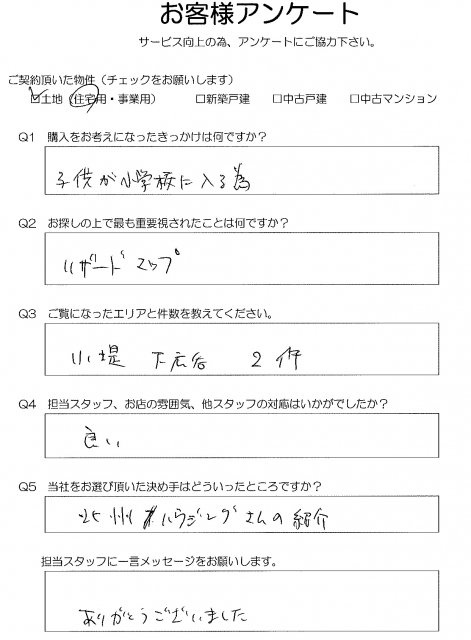 お客様アンケート
サービス向上の為、アンケートにご協力下さい。
ご契約頂いた物件(チェックをお願いします)
☑土地(住宅用・事業用) □新築戸建 □中古戸建 □中古マンション
Q1 購入をお考えになったきっかけは何ですか?
子供が小学校に入る為
Q2 お探しの上で最も重要視されたことは何ですか?
ハザードマップ
Q3 ご覧になったエリアと件数を教えてください。
小堤 下広谷 2件
Q4 担当スタッフ、お店の雰囲気、他スタッフの対応はいかがでしたか?
良い
Q5 当社をお選び頂いた決め手はどういったところですか?
ハウジングさんの紹介
担当スタッフに一言メッセージをお願いします。
ありがとうございました